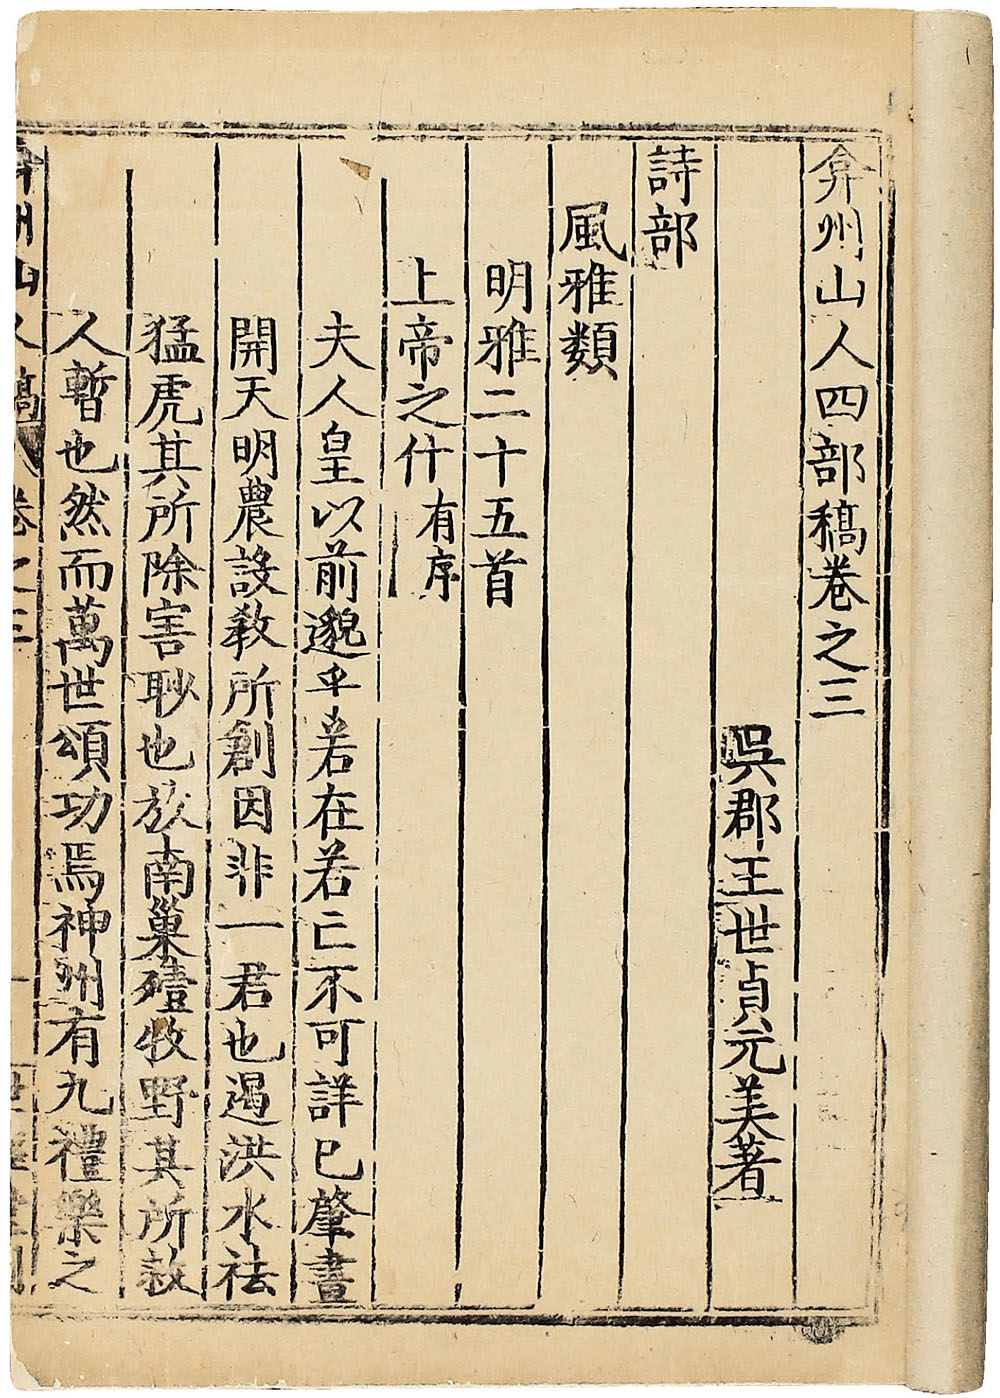 弇州山人四部稿卷之三
吳郡王世貞元美著
詩部
風雅類
明雅二十五首
上帝之什有序
夫人皇以前邈乎若在若亡不可詳已肇畫
開天明農設教所創因非一君也遏洪水祛
猛虎其所除害眇也放南巢殪牧野其所救
人暫也然而萬世頌功焉神州有九禮樂之
弇州山人稿 卷之三 一 世經堂刻